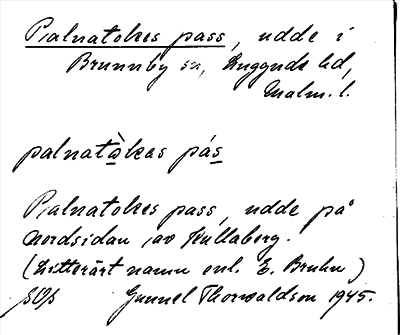 Palnatokes pass, udde i
Brunnby sn, Luggude hd,
Malm. l.
palnatò̱kas pás̱
Palnatokes pass, udde på
nordsidan av Kullaberg.
(Litterärt namn enl. E. Bruhn)
Gunnel Thorvaldson 1945.